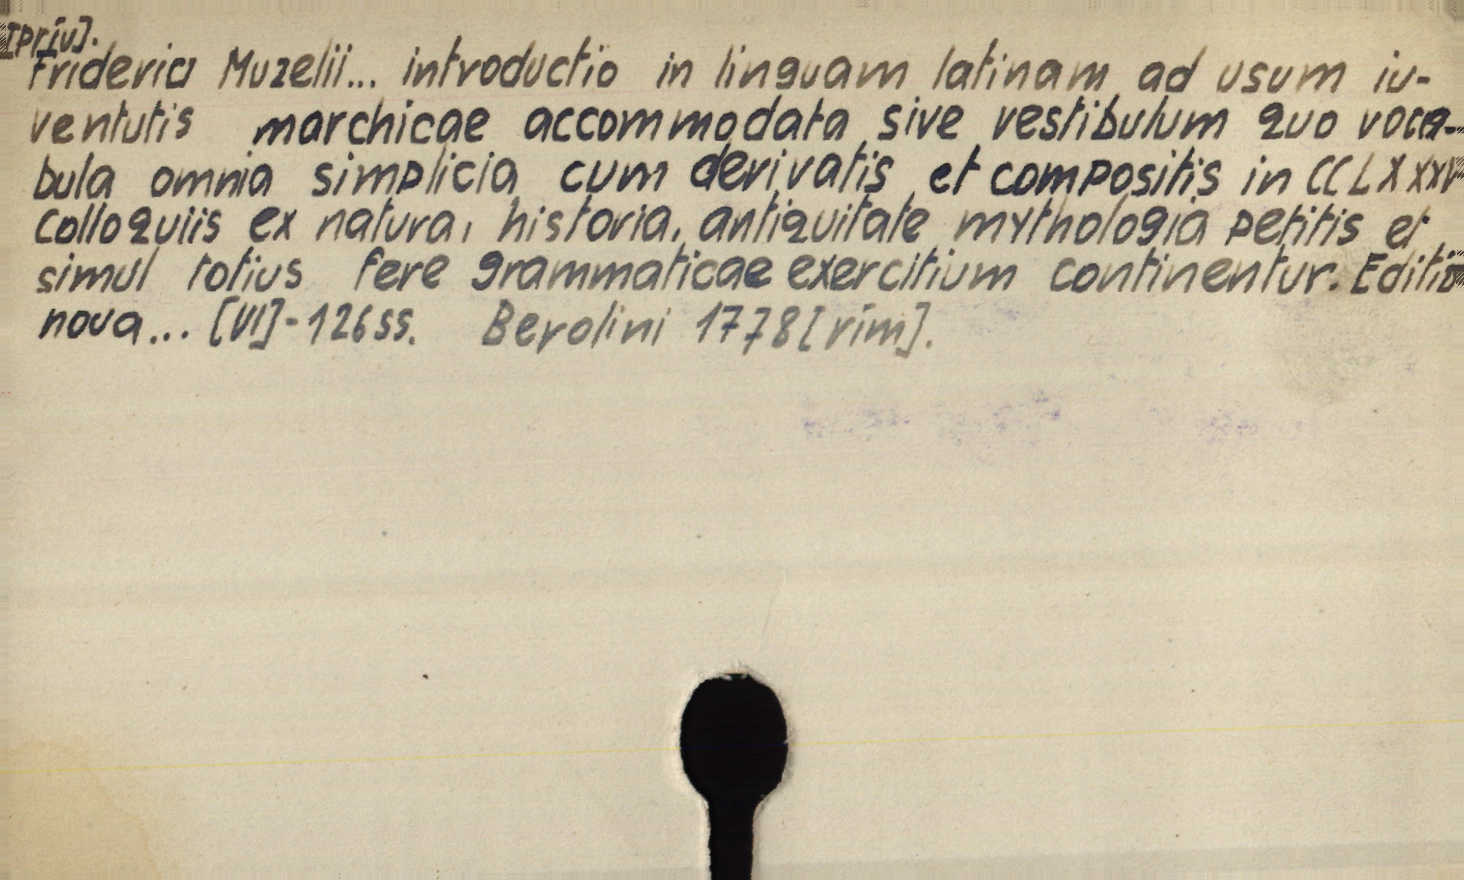 [priv].
Friderici Muzelii... introductio in linguam latinam ad usum iu-
ventutis marchicae accommodata sive vestibulum quo voca-
bula omnia simplicia cum derivatis et compositis in CCLXXXV
colloquiis ex natura, historia, antiquitate mythologia petitis et
simul totius fere grammaticae exercitium continentur. Editio
nova... [VI]-126 ss. Berolini 1778 [rim].